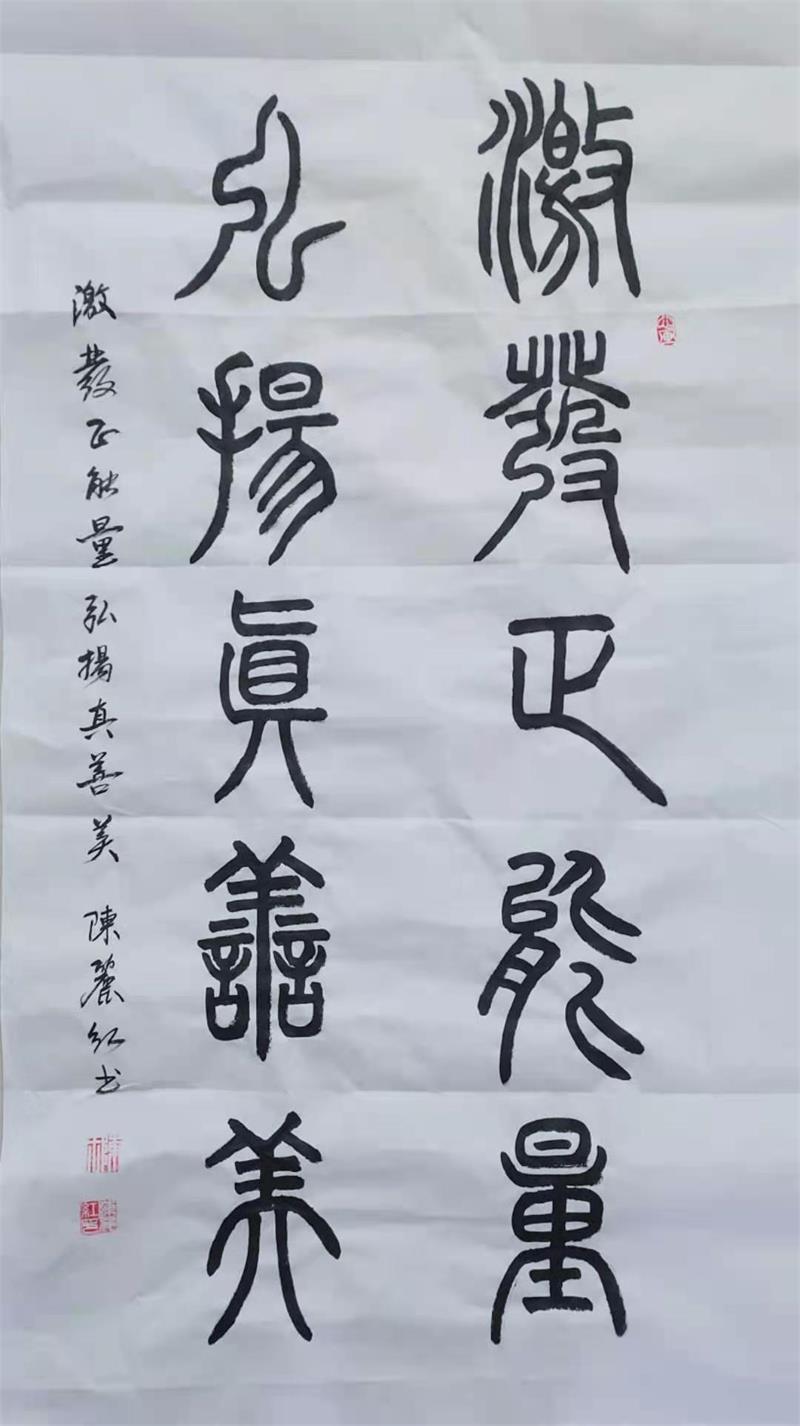 激發正能量
弘揚眞善美
激發正能量弘揚真善美 陳麗紅书